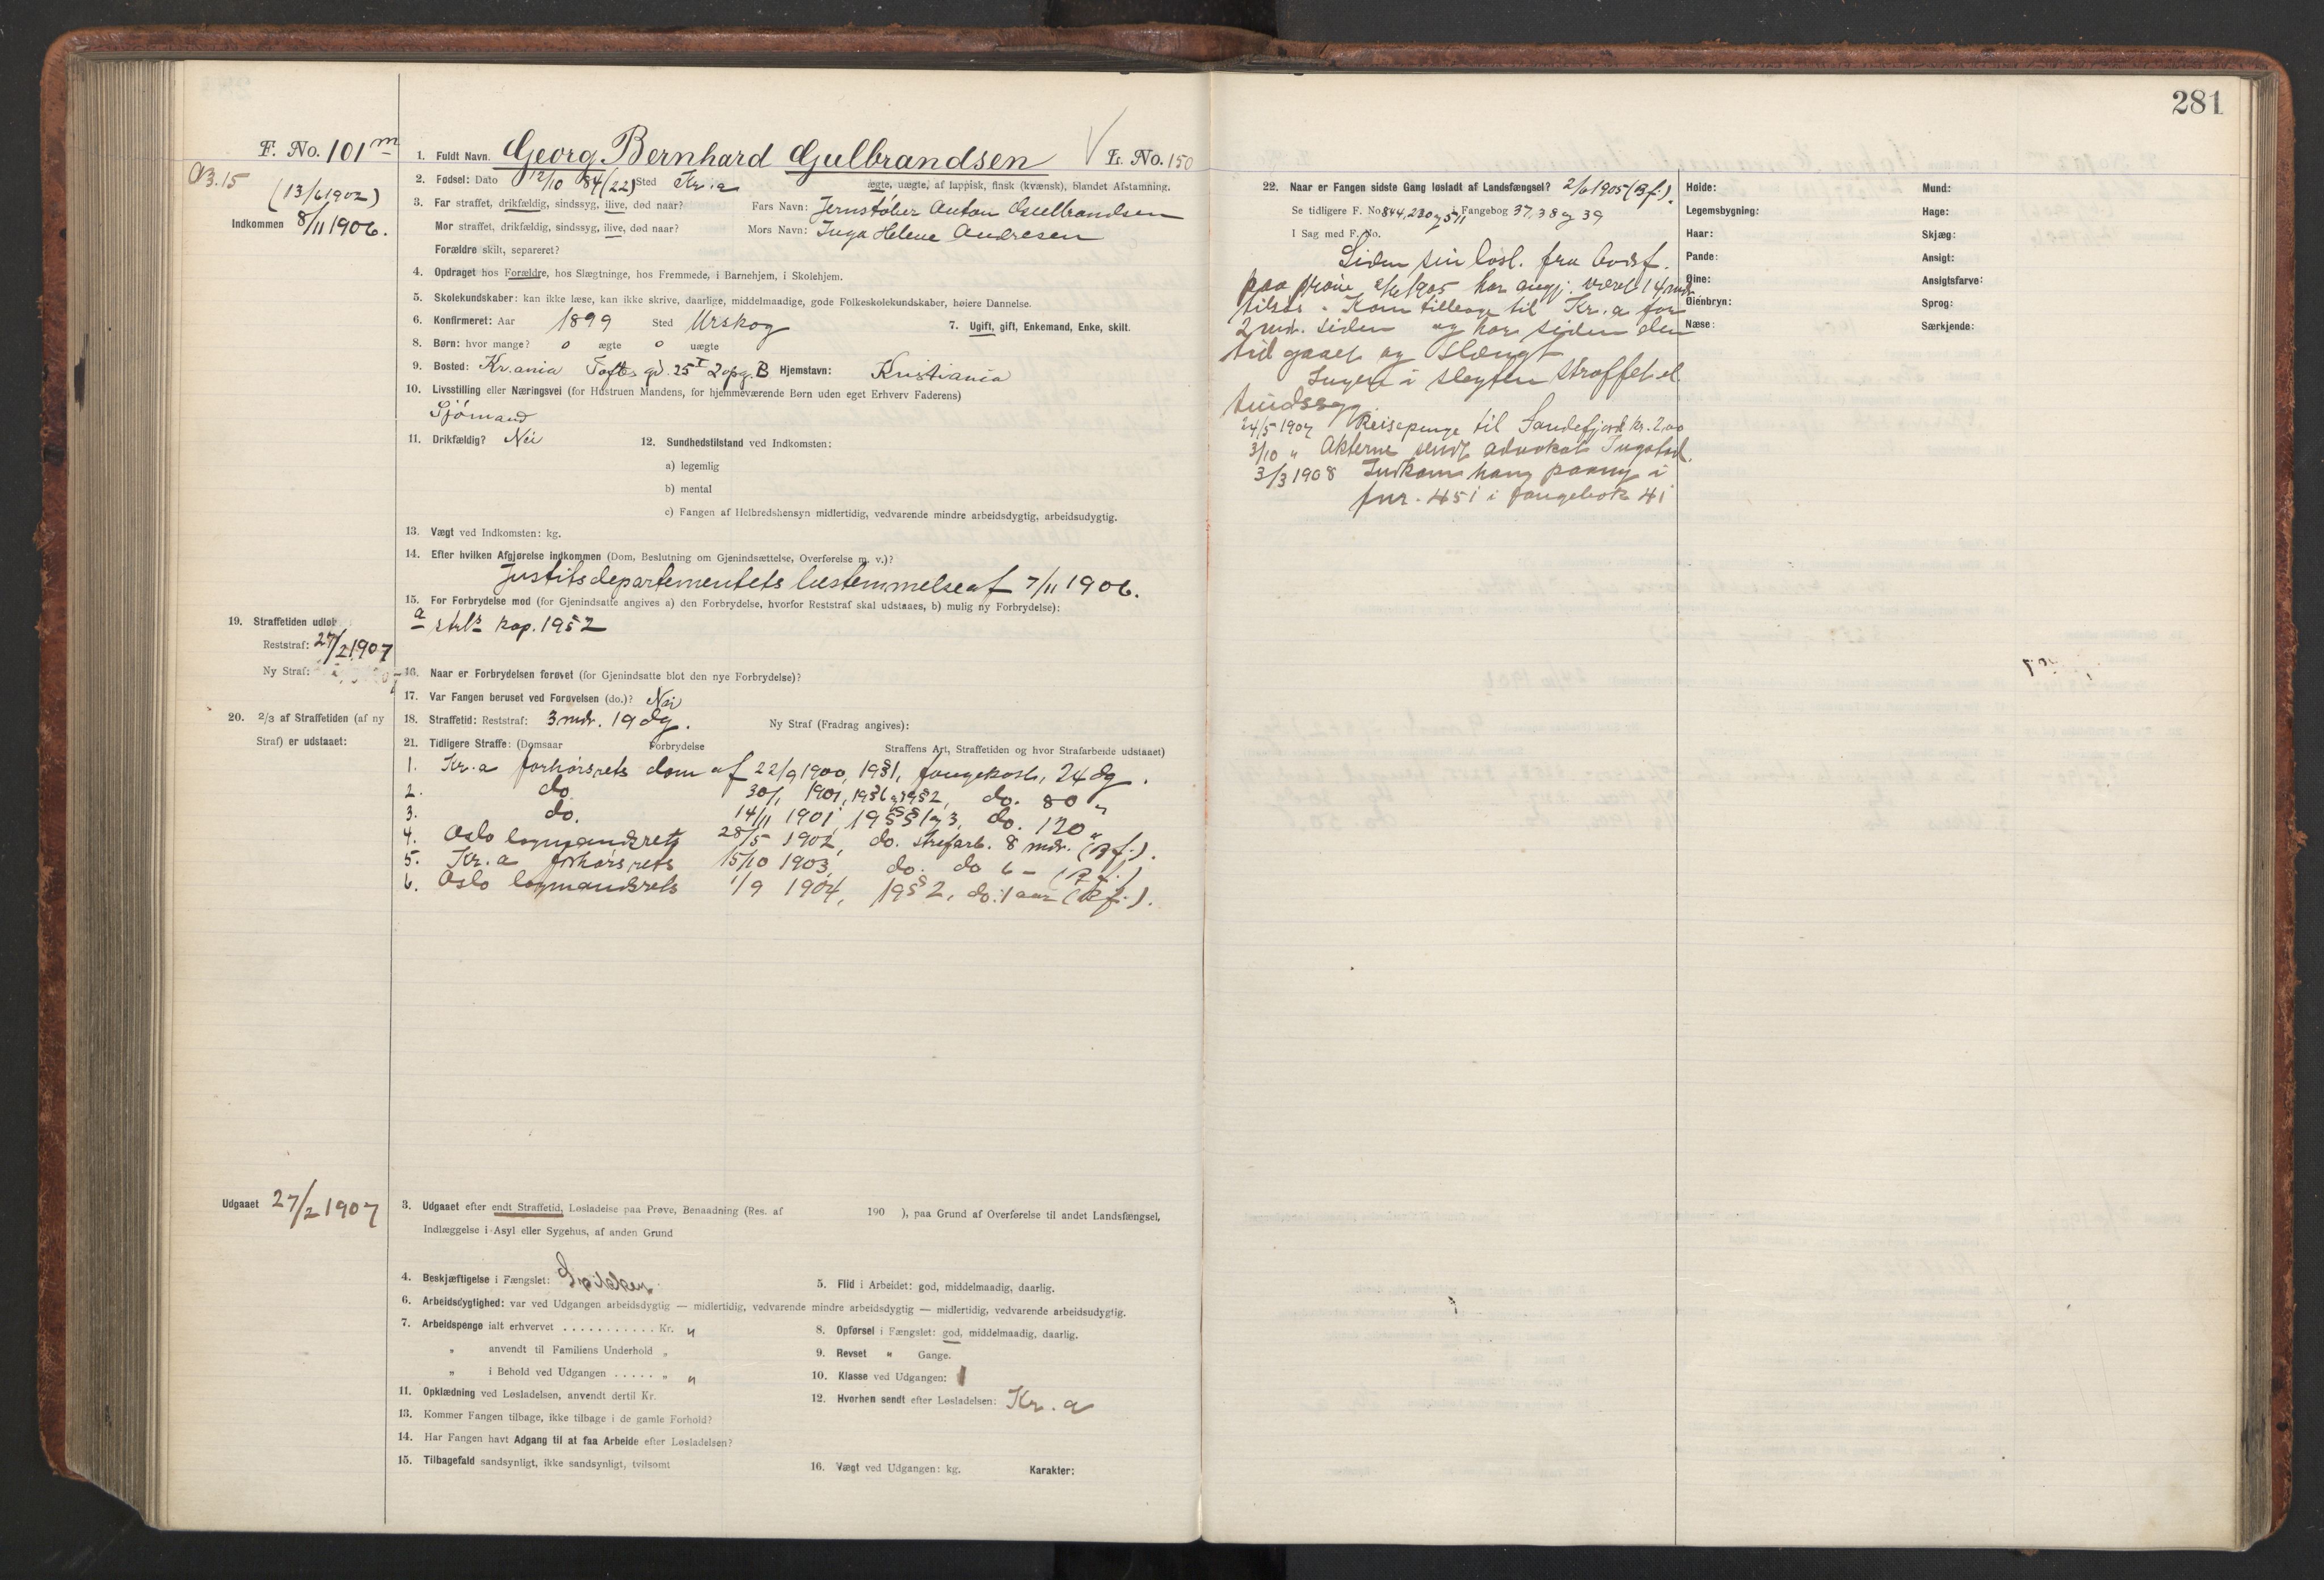 281
F. No. 101 m
1. Fuldt Navn. Georg Bernhard Gulbrandsen V Fr. No. 150
(13/6 1902)
Indkommen 8/11 1906.
2. Fødsel: Dato 12/10 84 (22) Sted Kr.a ægte, uægte, af lappisk, finsk (kvænsk), blandet Afstamning.
3. Far straffet, drikfældig, sindssyg, ilive, død naar? Fars Navn: Jernstøber Anton Gulbrandsen
Mor straffet, drikfældig, sindssyg, ilive, død naar? Mors Navn: Inga Helene Andresen
Forældre skilt, separeret?
4. Opdraget hos Forældre, hos Slægtninge, hos Fremmede, i Barnehjem, i Skolehjem.
5. Skolekundskaber: kan ikke læse, kan ikke skrive, daarlige, middelmaadige, gode Folkeskolekundskaber, høiere Dannelse.
6. Konfirmeret: Aar 1899 Sted Urskog 7. Ugift, gift, Enkemand, Enke, skilt.
8. Børn: hvor mange? 0 ægte 0 uægte
9. Bosted: Kr.ania Toftes gd. 25 I 2 opg. B Hjemstavn: Kristiania
10. Livsstilling eller Næringsvei (for Hustruen Mandens, for hjemmeværende Børn uden eget Erhverv Faderens)
Sjömand
11. Drikfældig? Nei 12. Sundhedstilstand ved Indkomsten:
a) legemlig
b) mental
c) Fangen af Helbredshensyn midlertidig, vedvarende mindre arbeidsdygtig, arbeidsudygtig.
13. Vægt ved Indkomsten: kg.
14. Efter hvilken Afgjørelse indkommen (Dom, Beslutning om Gjenindsættelse, Overførelse m. v.)?
Justitsdepartementets bestemmelse af 7/11 1906.
15. For Forbrydelse mod (for Gjenindsatte angives a) den Forbrydelse, hvorfor Reststraf skal udstaaes, b) mulig ny Forbrydelse):
a strls kap. 19 § 2
19. Straffetiden udløb
Reststraf: 27/2 1907
Ny Straf:
16. Naar er Forbrydelsen forøvet (for Gjenindsatte blot den nye Forbrydelse)?
17. Var Fangen beruset ved Forøvelsen (do.)? Nei
18. Straffetid: Reststraf: 3 mdr. 19 dg. Ny Straf (Fradrag angives):
20. 2/3 af Straffetiden (af ny
Straf) er udstaaet:
21. Tidligere Straffe: (Domsaar Forbrydelse Straffens Art, Straffetiden og hvor Strafarbeide udstaaet)
1. Kr.a forhörsrets dom af 22/9 1900, 19 § 1, fangekost, 24 dg.
2. do. 30/1 1901, 19 § 1 og 19 § 2, do. 80 "
3. do. 14/11 1901, 19 §§ 1 og 3, do. 120 "
4. Oslo lagmandsrets 28/5 1902, do. strafarb. 8 mdr. (Bf.).
5. Kr.a forhörsrets 15/10 1903, do. do 6 –
6. Oslo lagmandsrets 1/9 1904, 19 § 2, do. 1 aar (Bf.).
Udgaaet 27/2 1907
3. Udgaaet efter endt Straffetid, Løsladelse paa Prøve, Benaadning (Res. af 190 ), paa Grund af Overførelse til andet Landsfængsel,
Indlæggelse i Asyl eller Sygehus, af anden Grund
4. Beskjæftigelse i Fængslet: 5. Flid i Arbeidet: god, middelmaadig, daarlig.
6. Arbeidsdygtighed: var ved Udgangen arbeidsdygtig — midlertidig, vedvarende mindre arbeidsdygtig — midlertidig, vedvarende arbeidsudygtig.
7. Arbeidspenge ialt erhvervet ........... Kr. " 8. Opførsel i Fængslet: god, middelmaadig, daarlig.
" anvendt til Familiens Underhold " 9. Revset " Gange.
" i Behold ved Udgangen ..... " " 10. Klasse ved Udgangen: 1
11. Opklædning ved Løsladelsen, anvendt dertil Kr. 12. Hvorhen sendt efter Løsladelsen: Kr.a
13. Kommer Fangen tilbage, ikke tilbage i de gamle Forhold?
14. Har Fangen havt Adgang til at faa Arbeide efter Løsladelsen?
15. Tilbagefald sandsynligt, ikke sandsynligt, tvilsomt 16. Vægt ved Udgangen: kg. Karakter:
22. Naar er Fangen sidste Gang løsladt af Landsfængsel? 2/6 1905 (Bf.).
Se tidligere F. No 844, 230 og 511 i Fangebog 37, 38 og 39
I Sag med F. No.
Siden sin lösl. fra Bodsf.
paa pröve 2/6 1905 har angj. været 14 mdr.
tilsös. Kom tilbage til Kr.a for
2 md. siden og har siden den
tid gaaet og slængt
Ingen i slegten straffet el.
sindssyg.
24/5 1907 Reisepenge til Sandefjord kr. 2,00
3/10 " Akterne sendt advokat
3/3 1908 Indkom han paany i
fnr. 451 i fangebok 41
Høide: Mund:
Legemsbygning: Hage:
Haar: Skjæg:
Pande: Ansigt:
Øine: Ansigtsfarve:
Øienbryn: Sprog:
Næse: Særkjende: